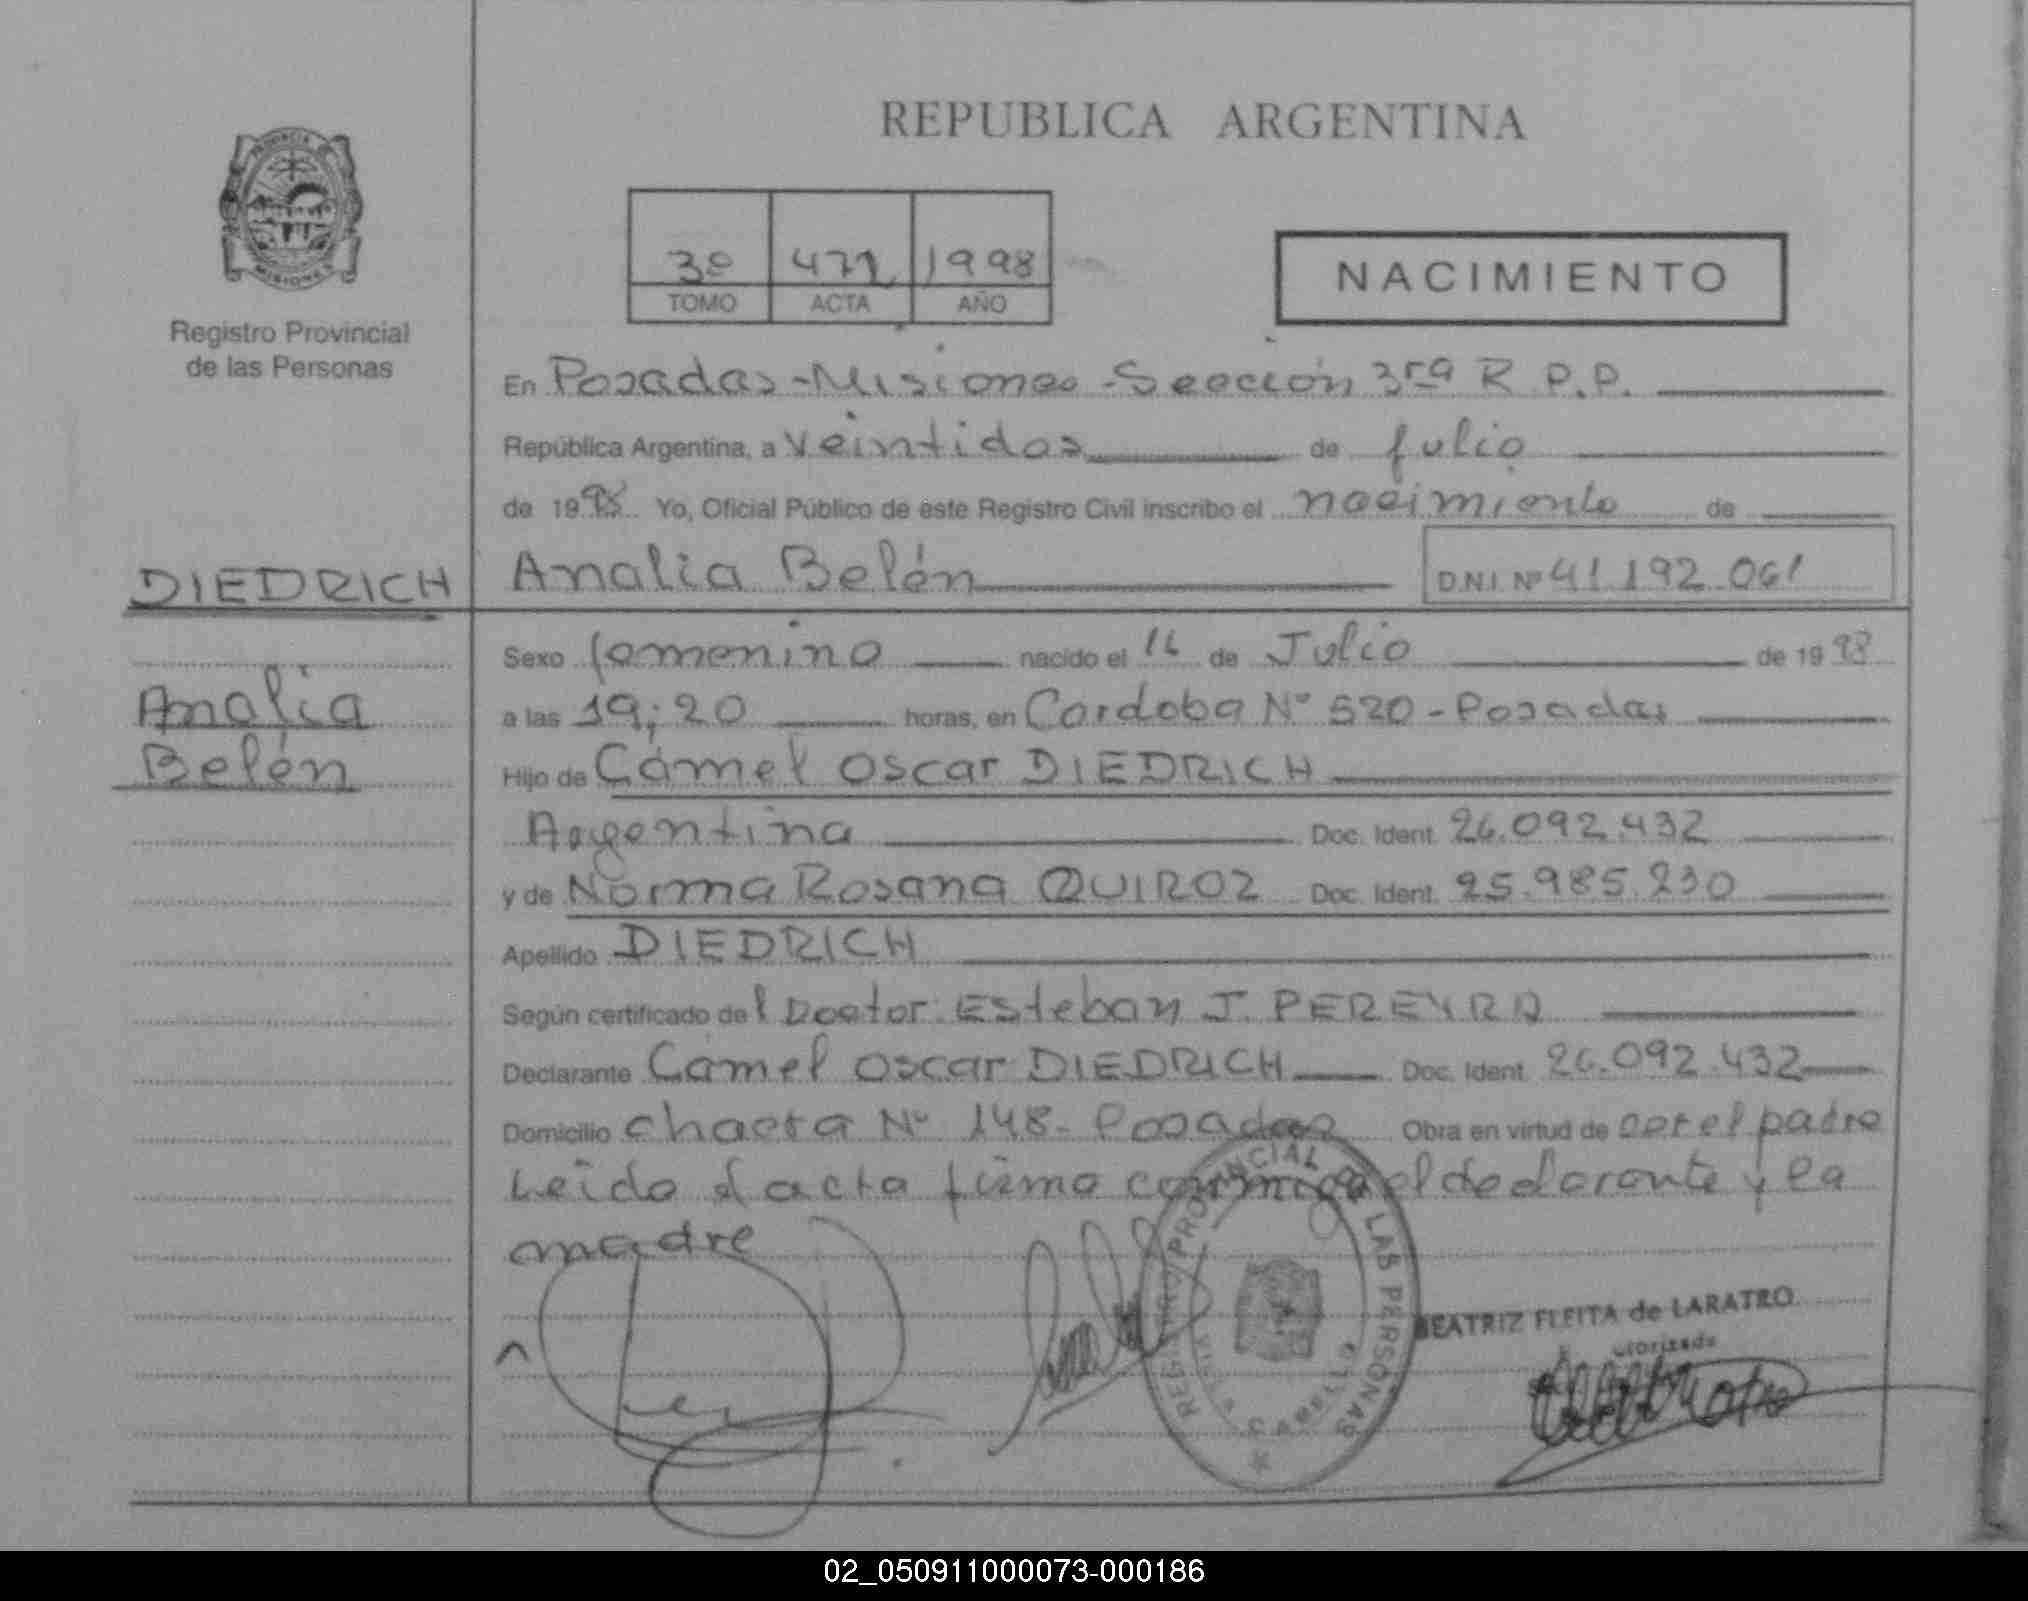 REPUBLICA ARGENTINA
PROVINCIA DE
MISIONES
Registro Provincial
de las Personas
3º 471 1998
TOMO ACTA AÑO
NACIMIENTO
En Posadas-Misiones-Sección 3ra R.P.P.
República Argentina, a veintidos de julio
de 1998 Yo, Oficial Público de este Registro Civil inscribo el nacimiento de
DIEDRICH
Analia Belén D.N.I. Nº 41.192.061
Analia
Belén
Sexo femenino nacido el 16 de Julio de 1998
a las 19;20 horas, en Cordoba Nº 520-Posadas
Hijo de Camel Oscar DIEDRICH
Argentina Doc. Ident. 26.092.432
y de Norma Rosana QUIROZ Doc. Ident. 25.985.230
Apellido DIEDRICH
Según certificado del Doctor: Esteban J. PEREYRA
Declarante Camel Oscar DIEDRICH Doc. Ident. 26.092.432
Domicilio chacra Nº 148- Posadas Obra en virtud de ser el padre
Leido el acta firma conmigo el declarante y la
madre
REGISTRO PROVINCIAL DE LAS PERSONAS
VILLA CABELLO
BEATRIZ FLEITA de LARATRO
02_050911000073-000186